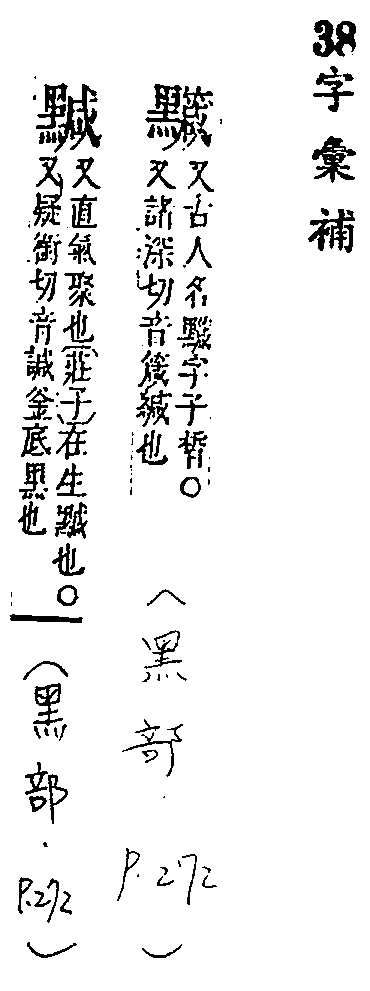 38字彙補
黬 又古人名黬字子皙○
又諸深切音箴緘也
(黑部.P.272)
黬 又直氣聚也(莊子)在生黬也○
又疑銜切音諴釜底黑也
(黑部.P.272)